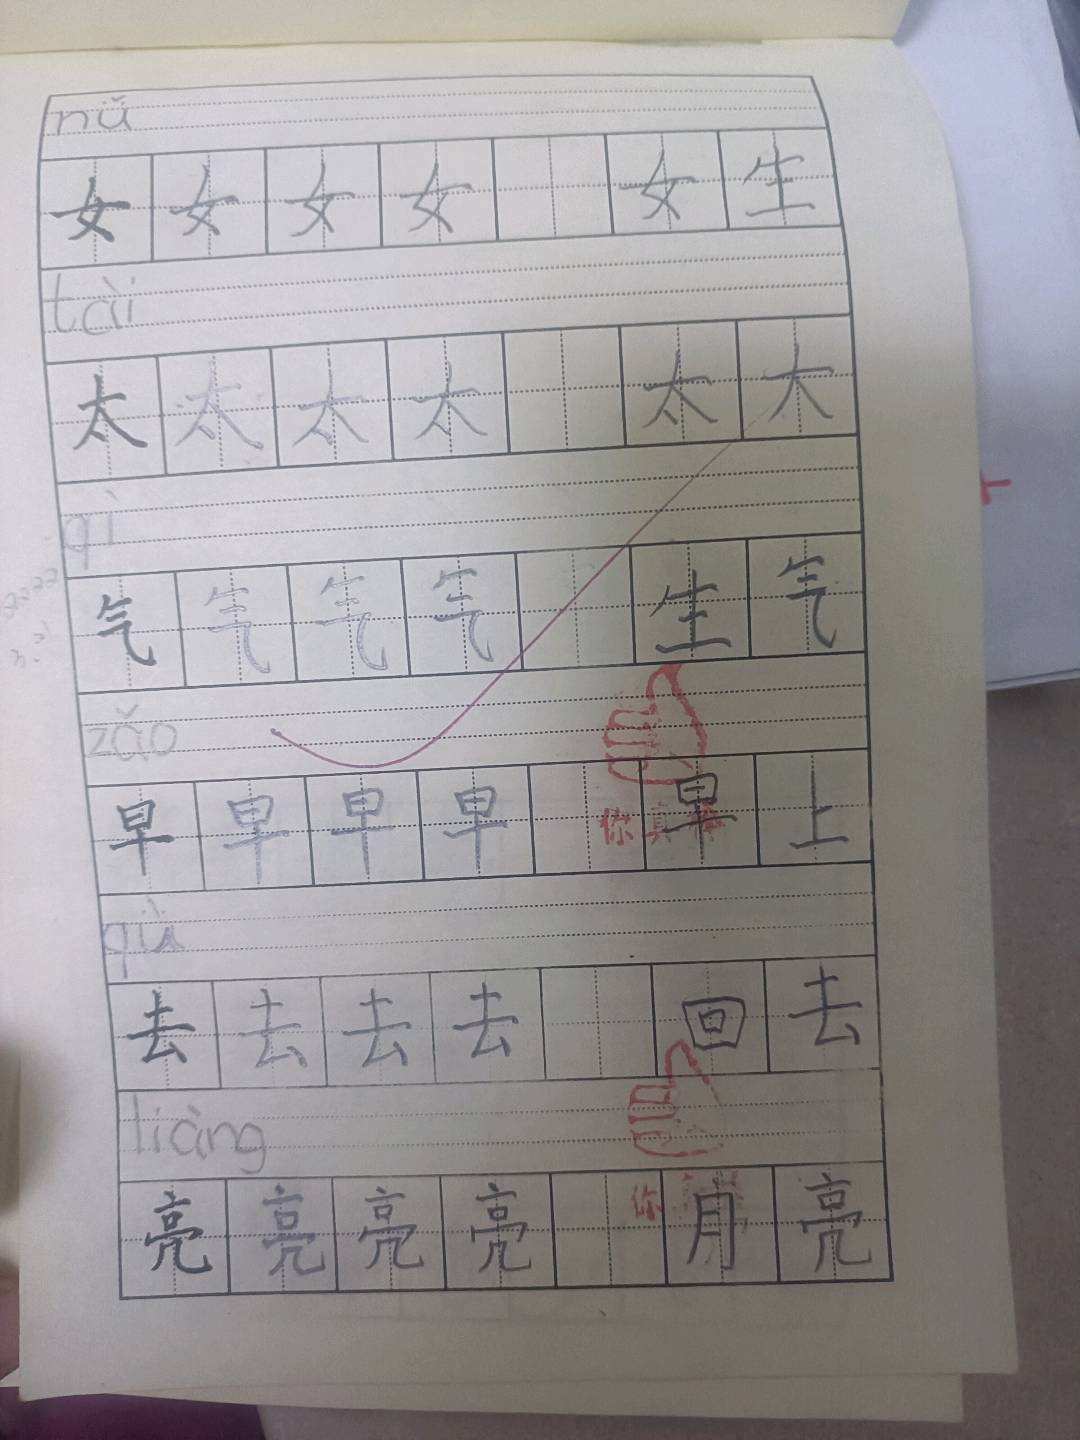 nǚ
女 女 女 女 女 生
tài
太 太 太 太 太 大
qì
气 气 气 气 生 气
zǎo
早 早 早 早 早 上
你真棒
qù
去 去 去 去 回 去
liàng
亮 亮 亮 亮 月 亮
你